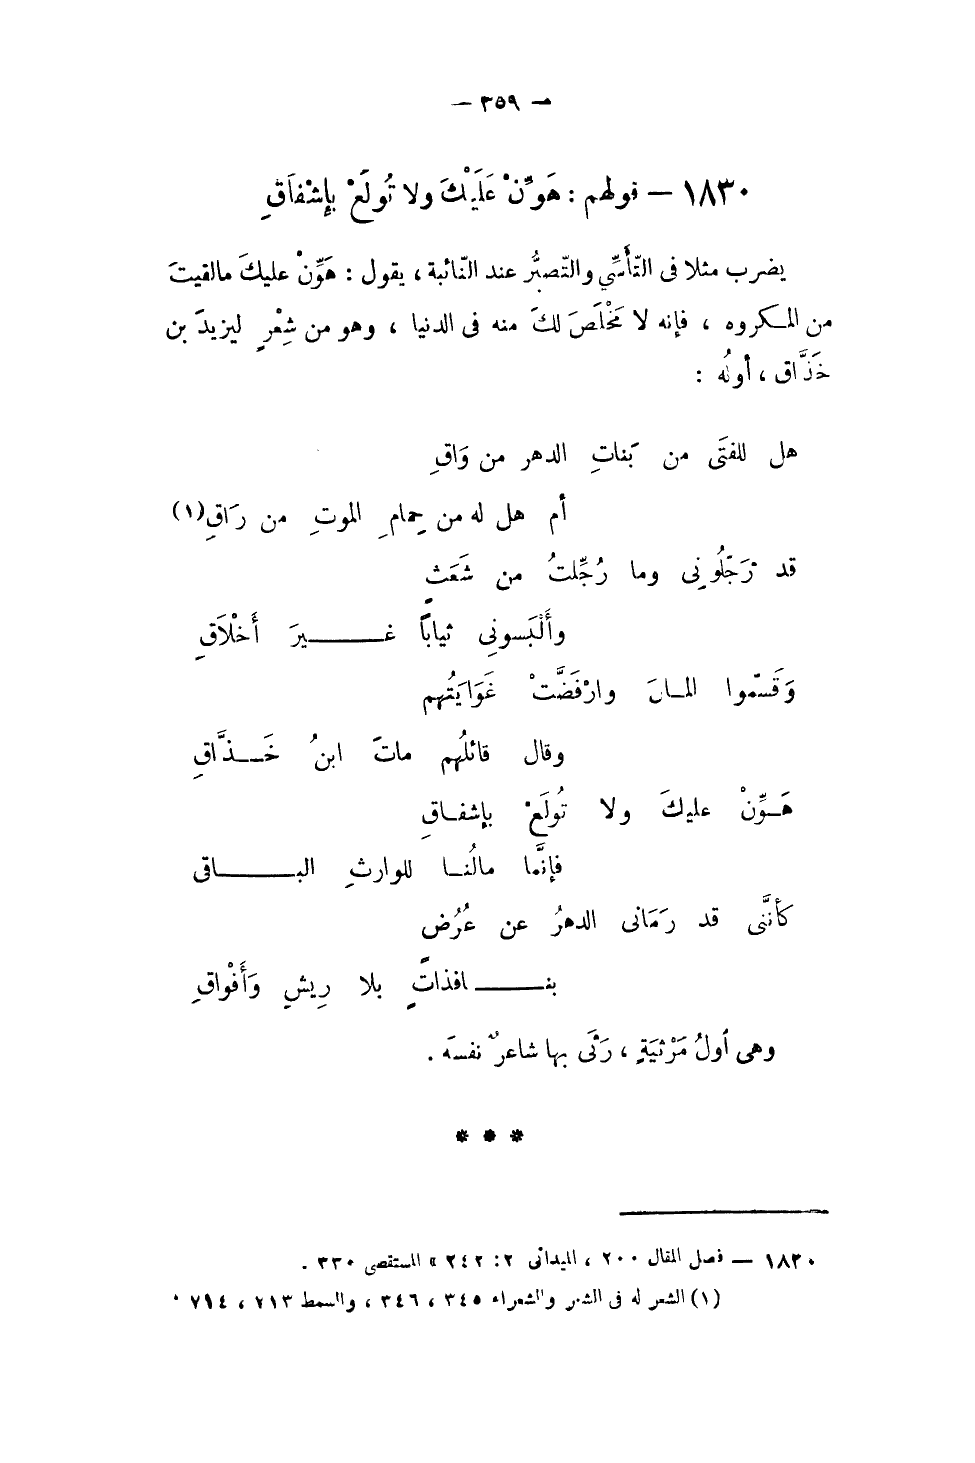 — ٣٥٩ —
١٨٣٠ — قولهم : هَوِّنْ عَلَيْكَ ولا تُولَعْ بإشْفاَقِ
يضرب مثلا فى التّأسِّي والتّصبُّر عند النّائبة ، يقول : هَوِّنْ عليكَ مالقيتَ
من المكروه ، فإنه لا مَخْلَصَ لكَ منه فى الدنيا ، وهو من شِعْرٍ ليزيدَ بن
خَذَّاق ، أولُه :
هل للفتَى من بَناتِ الدهر من وَاقِ
أم هل له من حِمامِ الموتِ من رَاقِ(١)
قد رَجّلُونِى وما رُجِّلتُ من شَعَثٍ
وألْبَسونِى ثياباً غيرَ أَخْلاَقِ
وَقَسّموا المالَ وارْفَضَّتْ غَوَايَتُهم
وقال قائلُهم ماتَ ابنُ خَذَّاقِ
هَوِّنْ عليكَ ولا تُولَعْ بإشفاقِ
فإنَّما مالُنا للوارثِ الباقى
كأنَّنى قد رَمَانى الدهرُ عن عُرُضٍ
بنافذاتٍ بلا رِيشٍ وَأَفْواقِ
وهى أولُ مَرْثيَةٍ ، رَثَى بها شاعرٌ نفسَه .
* * *
١٨٣٠ — فصل المقال ٢٠٠ ، الميدانى ٢: ٢٤٢ ، المستقصى ٣٣٠ .
(١) الشعر له فى الشعر والشعراء ٣٤٥ ، ٣٤٦ ، والسمط ٢١٣ ، ٧١٤ .